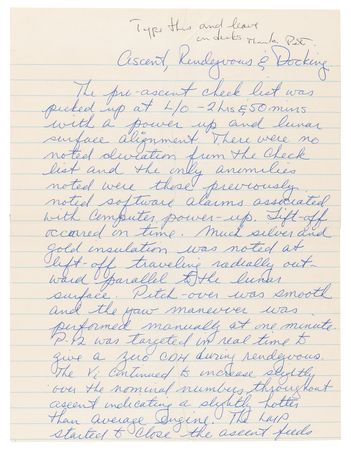 Type this and leave
Thanks Pat.
Ascent, Rendezvous & Docking
The pre-ascent check list was
picked up at L/O - 2 hrs & 50 mins
with a power up and lunar
surface alignment. There were no
noted deviation from the check
list and the only anomilies
noted were those previously
noted software alarms associated
with computer power-up. Lift-off
occored on time. Much silver and
gold insulation was noted at
lift-off traveling radially out-
ward parallel to the lunar
surface. Pitch-over was smooth
and the yaw maneuver was
performed manually at one minute.
P-12 was targeted in real time to
give a zero CDH during rendezvous.
The Vi continued to increase slightly
over the nominal numbers throughout
ascent indicating a slightly hotter
than average engine. The LMP
started to close the ascent feeds